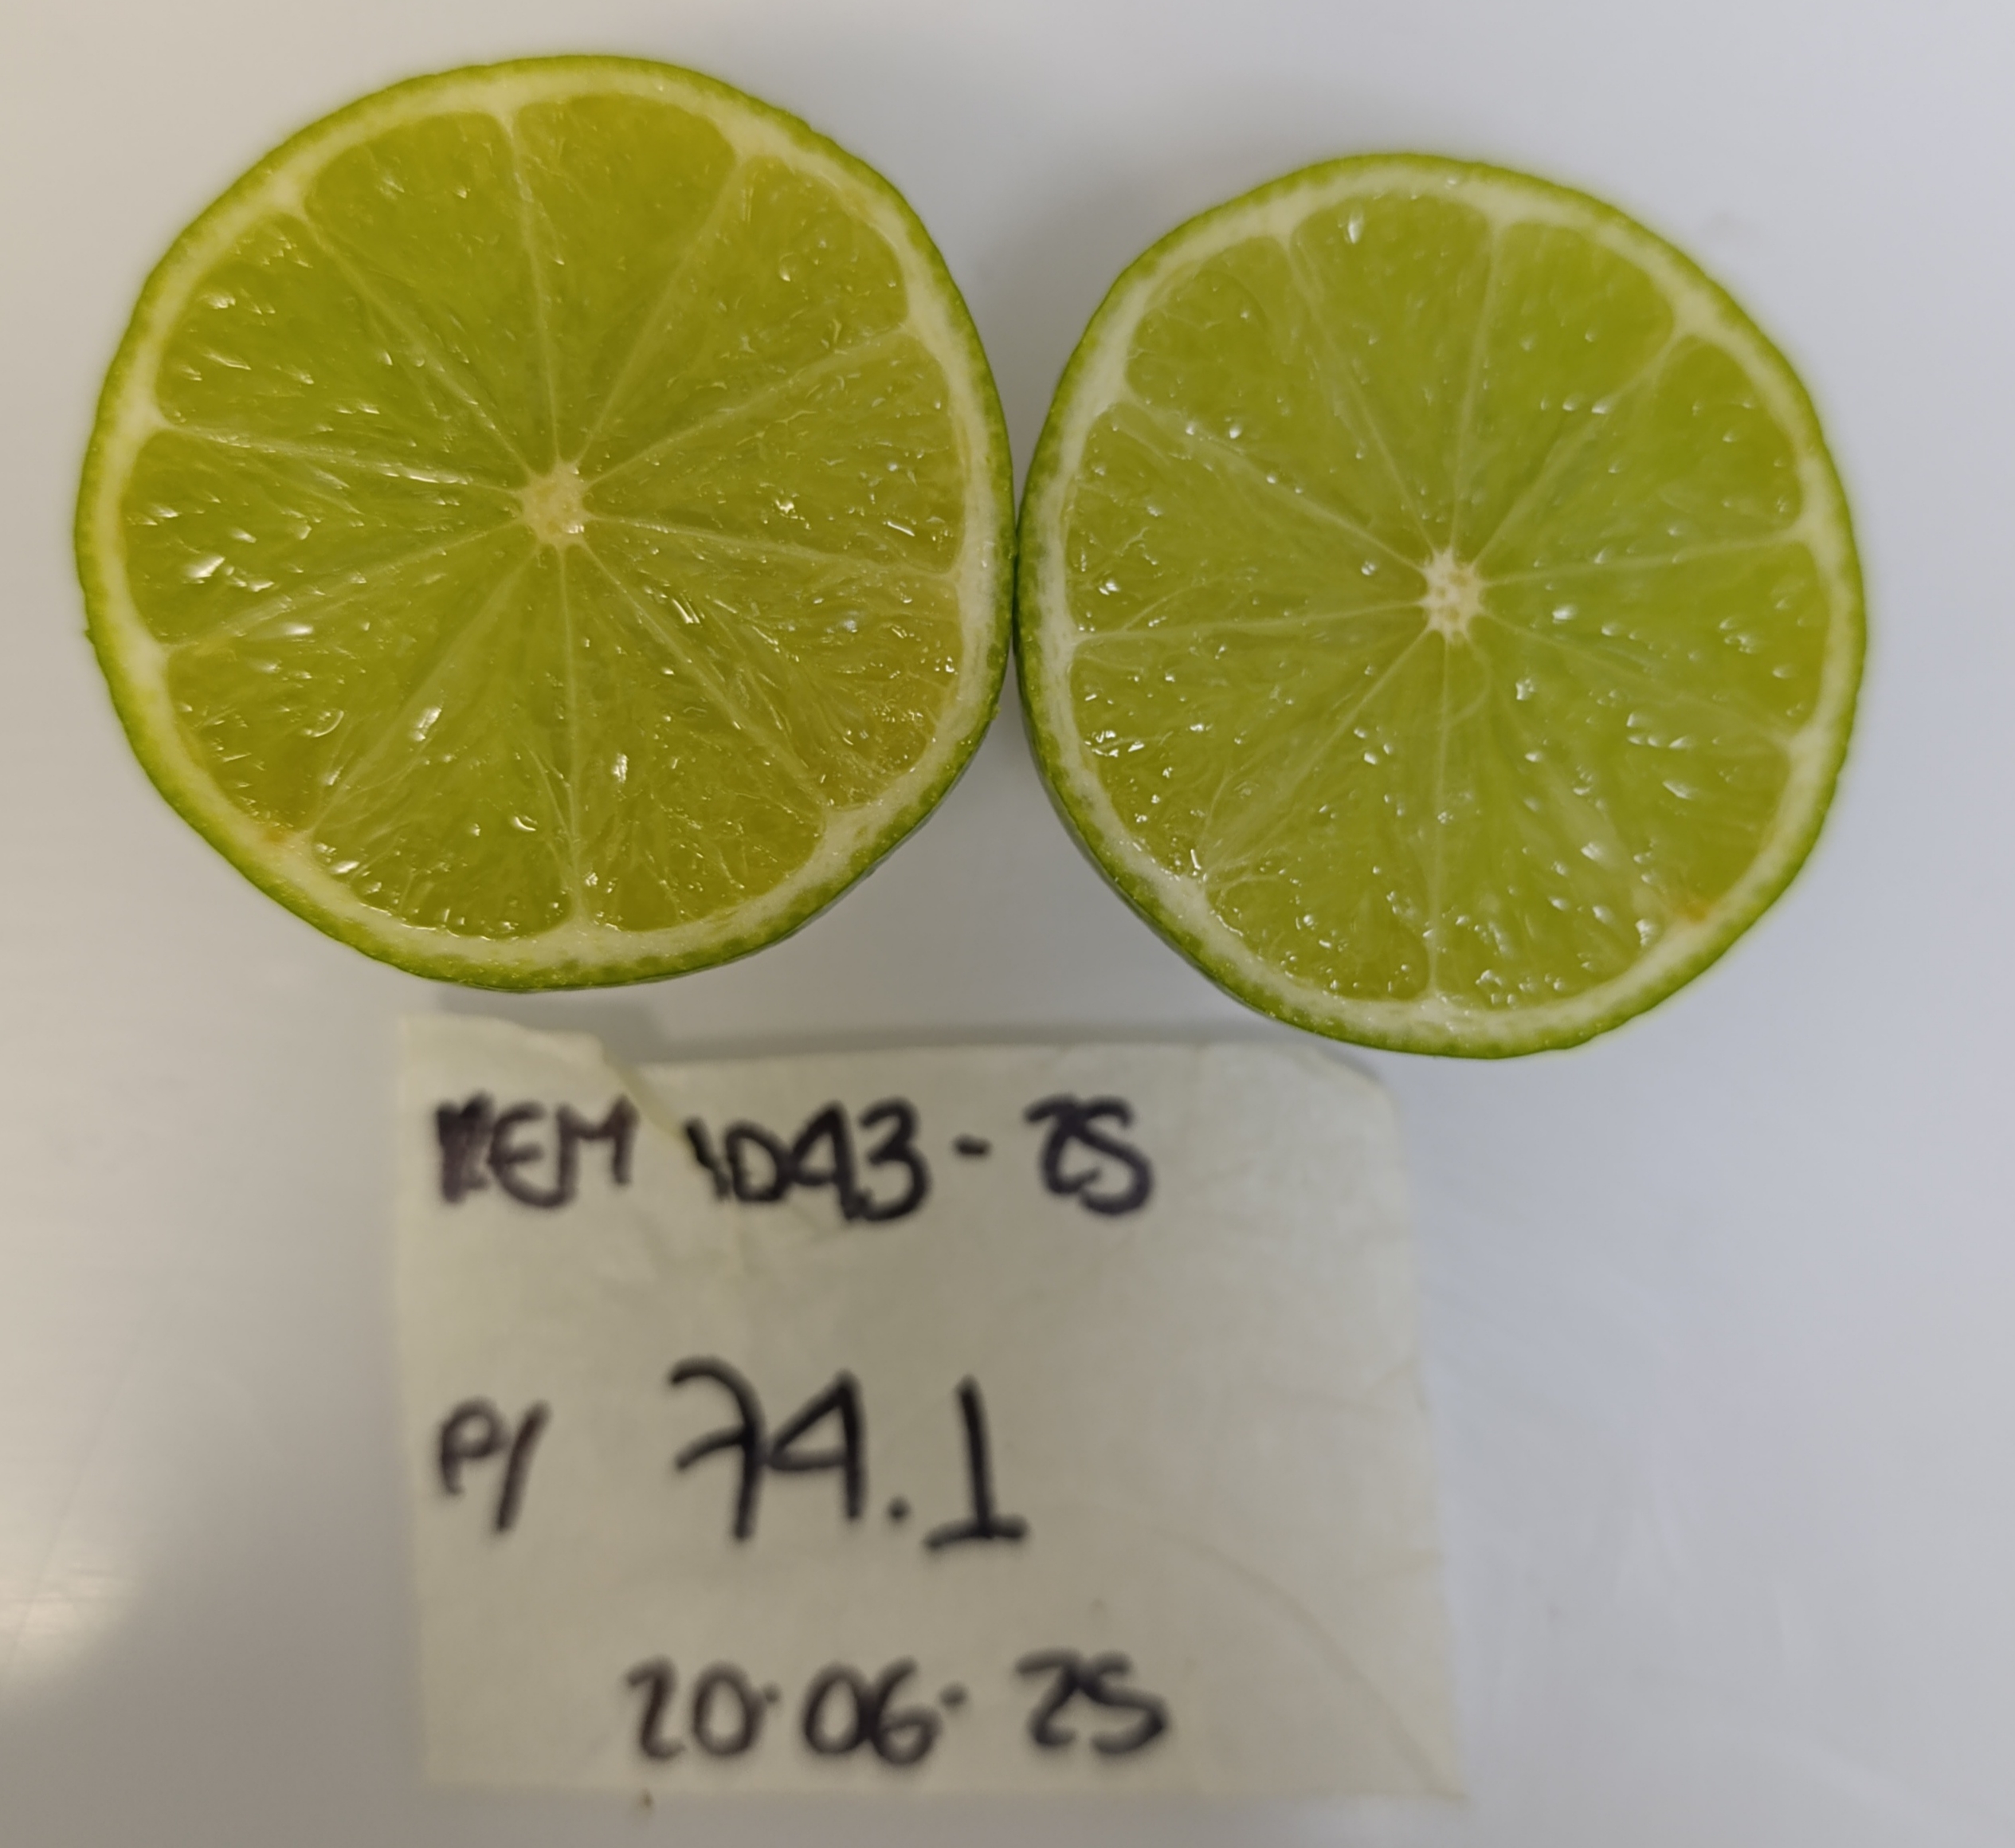 REM 1043-25
P/ 74.1
20-06-25